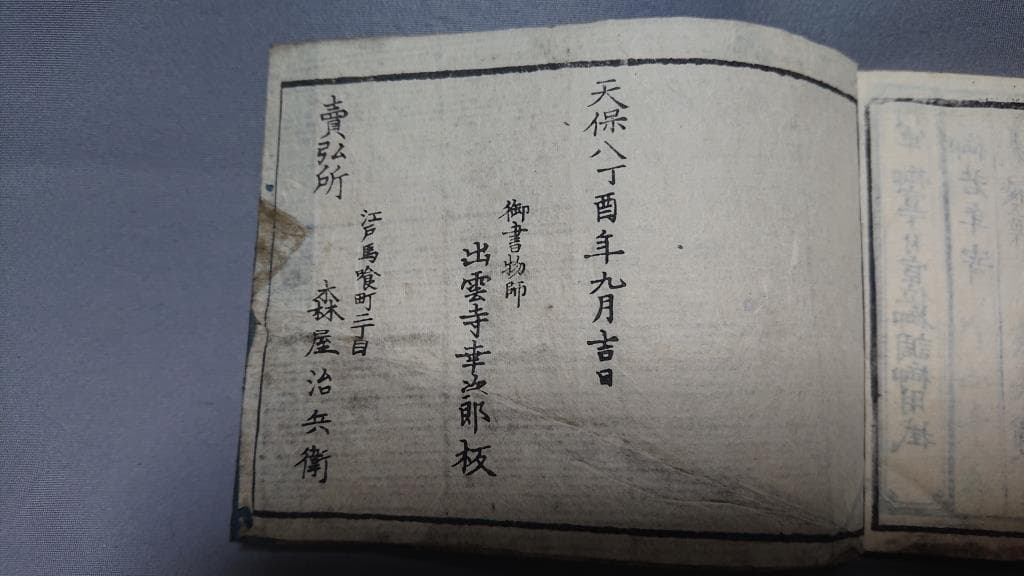 天保八丁酉年九月吉日
御書物師
出雲寺幸次郎板
江戸馬喰町二丁目
賣弘所
森屋治兵衛